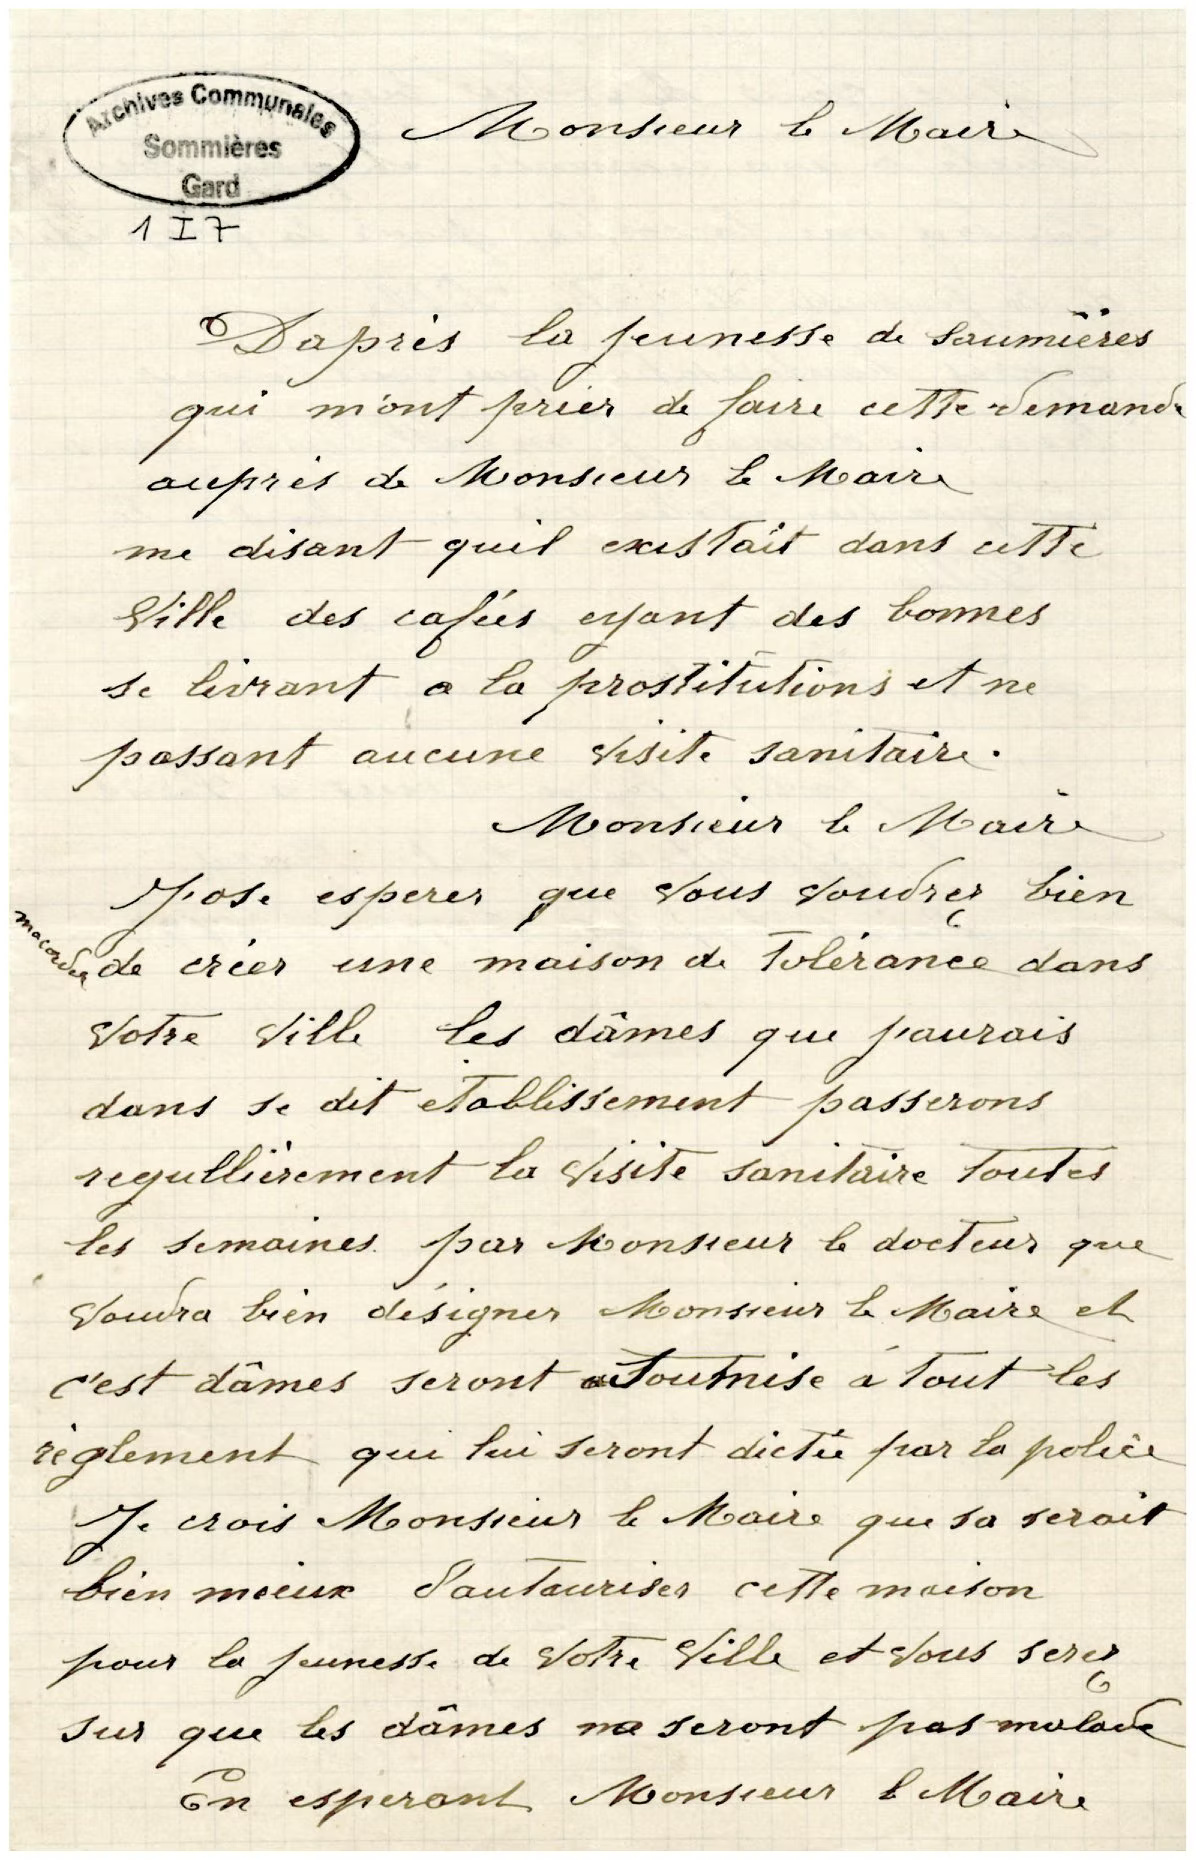 Archives Communales
Sommières
Gard
1 I 7
Monsieur le Maire
Daprès la jeunesse de Saumières
qui m'ont prier de faire cette demande
auprès de Monsieur le Maire
me disant quil existait dans cette
Ville des cafées eyant des bonnes
se livrant a la prostitutions et ne
passant aucune Visite sanitaire.
Monsieur le Maire
J'ose esperer que Vous Voudrez bien
macorder
de créer une maison de Tolérance dans
Votre Ville les dâmes que j'aurais
dans se dit etablissement passerons
regullièrement la Visite sanitaire toutes
les semaines par Monsieur le docteur que
Voudra bien désigner Monsieur le Maire et
c'est dâmes seront soutmise à tout les
règlement qui lui seront dictée par la police
Je crois Monsieur le Maire que sa serait
bien mieux d'autauriser cette maison
pour la jeunesse de Votre Ville et Vous serez
sur que les dâmes ne seront pas malade
En esperant Monsieur le Maire